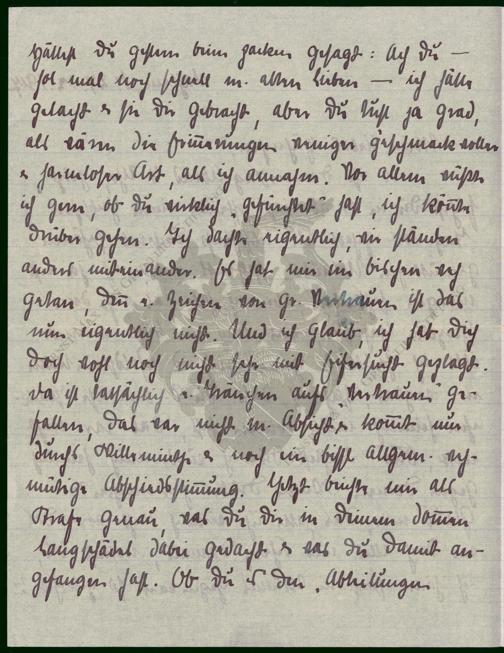 Hättest Du gestern beim packen gesagt: Ach du —
hol mal noch schnell m. alten Lieben — ich hätte
gelacht & sie dir gebracht, aber Du tust ja grad,
als wären die Erinnerungen weniger geschmackvoller
& harmloser Art, als ich annahm. Vor allem wüßte
ich gern, ob Du wirklich „gefürchtet" hast, ich könnte
drüber gehen. Ich dachte eigentlich, wir ständen
anders miteinander. Es hat mir ein bischen weh
getan, denn e. Zeichen von gr. Vertrauen ist das
nun eigentlich nicht. Und ich glaub, ich hab Dich
doch wohl noch nicht sehr mit Eifersucht geplagt.
Da ist tatsächlich e. Tränchen aufs „Vertrauen" ge-
fallen, das war nicht m. Absicht & kommt nur
durchs & noch ein bissl allgem. weh-
mütige Abschiedsstimmung. Jetzt beichte mir als
Strafe genau, was Du Dir in Deinem dommen
Langschädel dabei gedacht & was du damit an-
gefangen hast. Ob Du es den Abteilungen